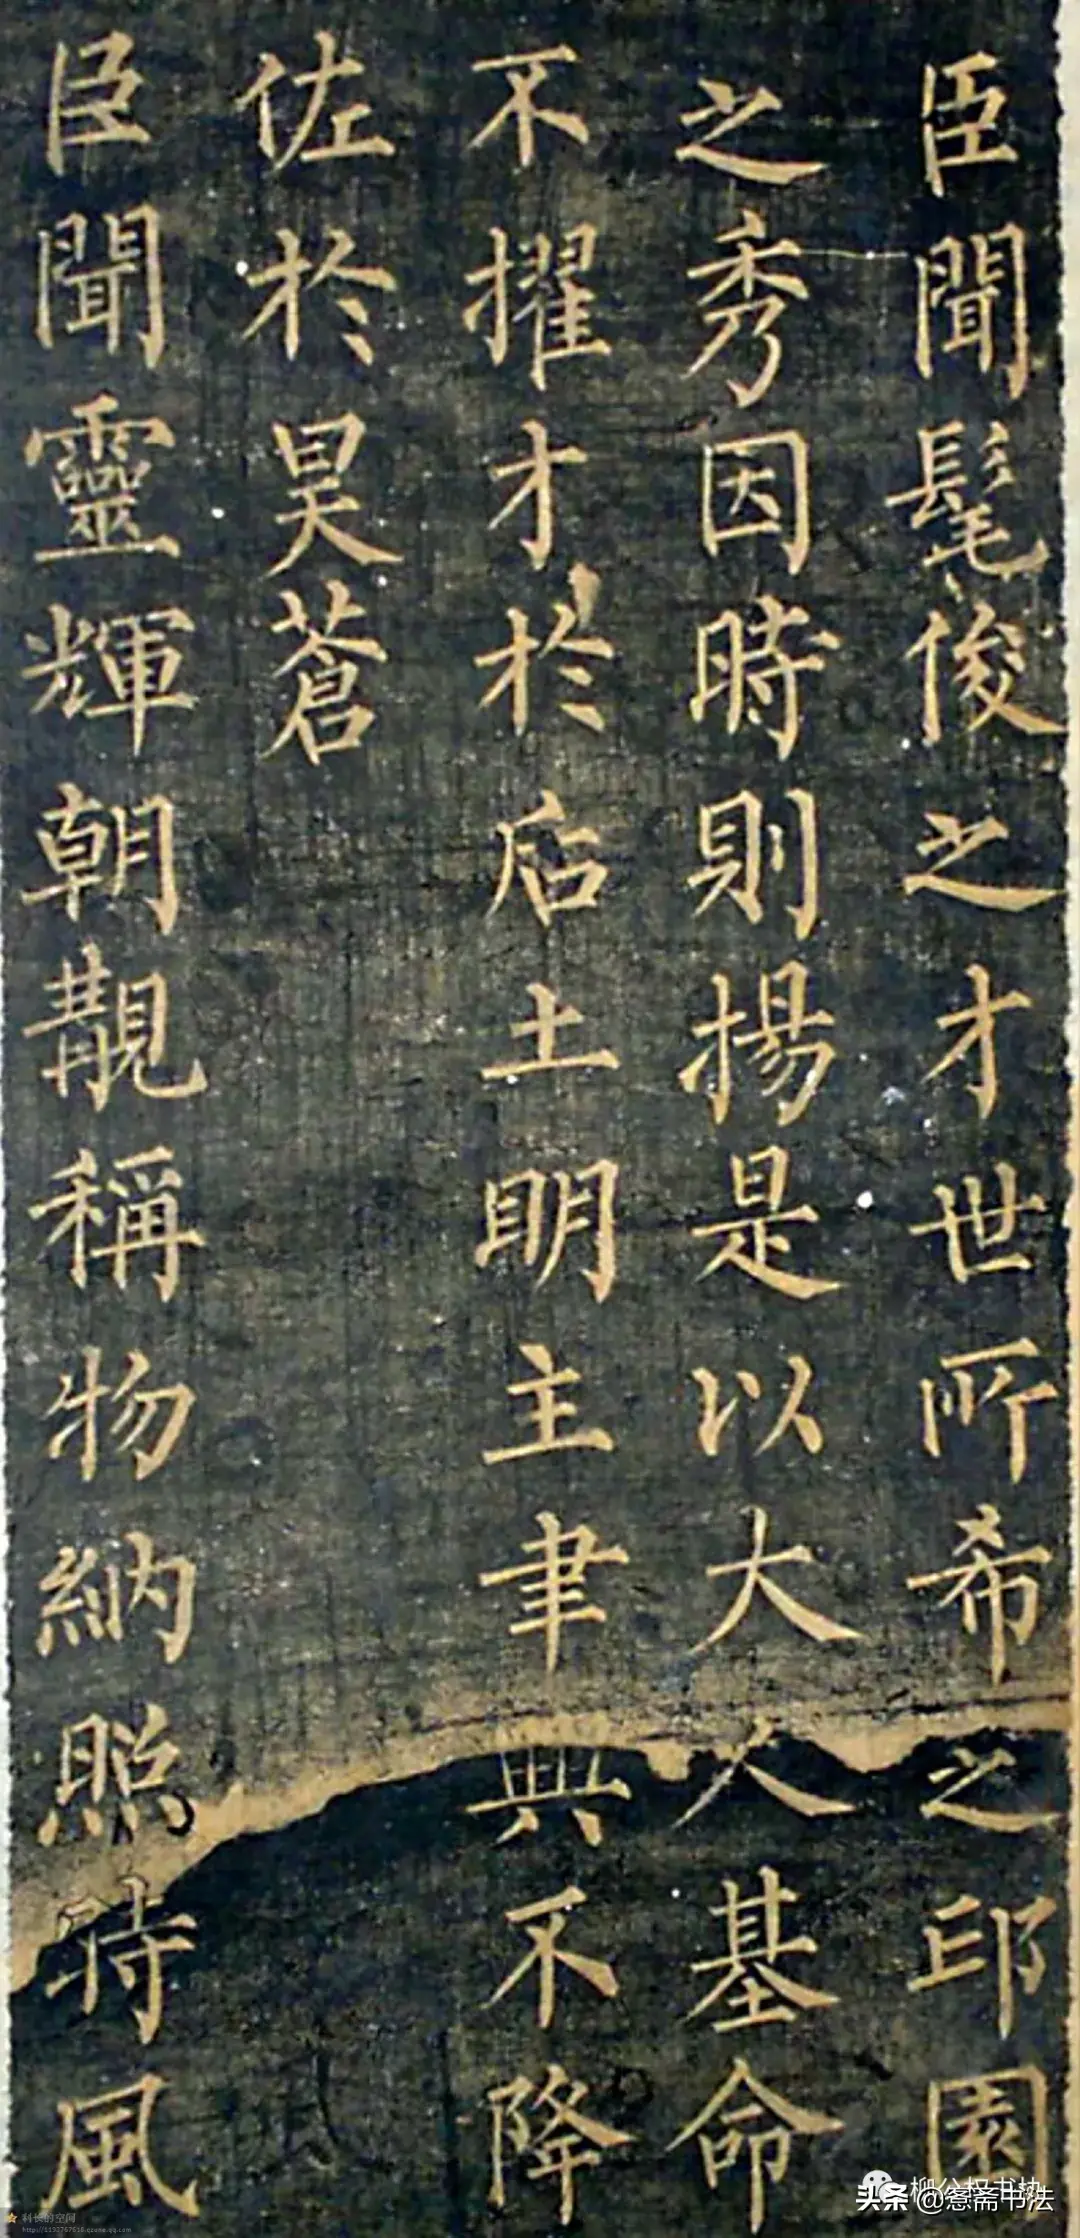 臣聞髦俊之才世所希之邱園
之秀因時則揚是以大人基命
不擢才於后土明主聿興不降
佐於昊蒼
臣聞靈輝朝覯稱物納照時風
柳公权书协
头条 @愙斋书法
科长的空间